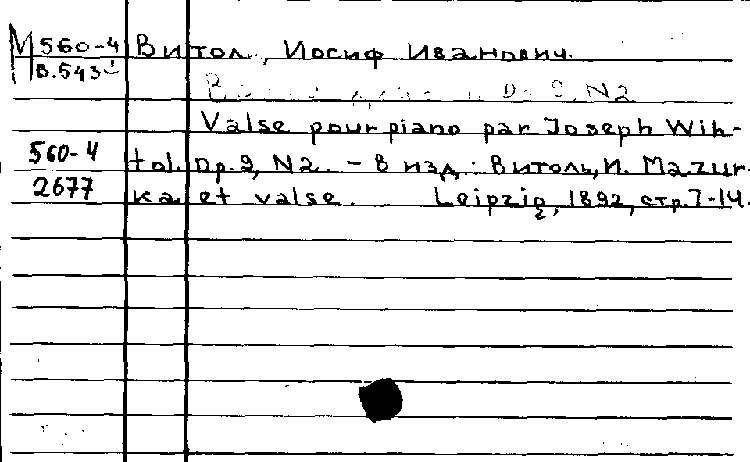 М 560-4 Витол, Иосиф Иванович.
В.543
Ор. 9, N2
Valse pour piano par Joseph Wih-
560-4 tol. Op. 9, N2. - В изд.: Витоль, И. Mazur-
2677 ka et valse. Leipzig, 1892, стр. 7-14.